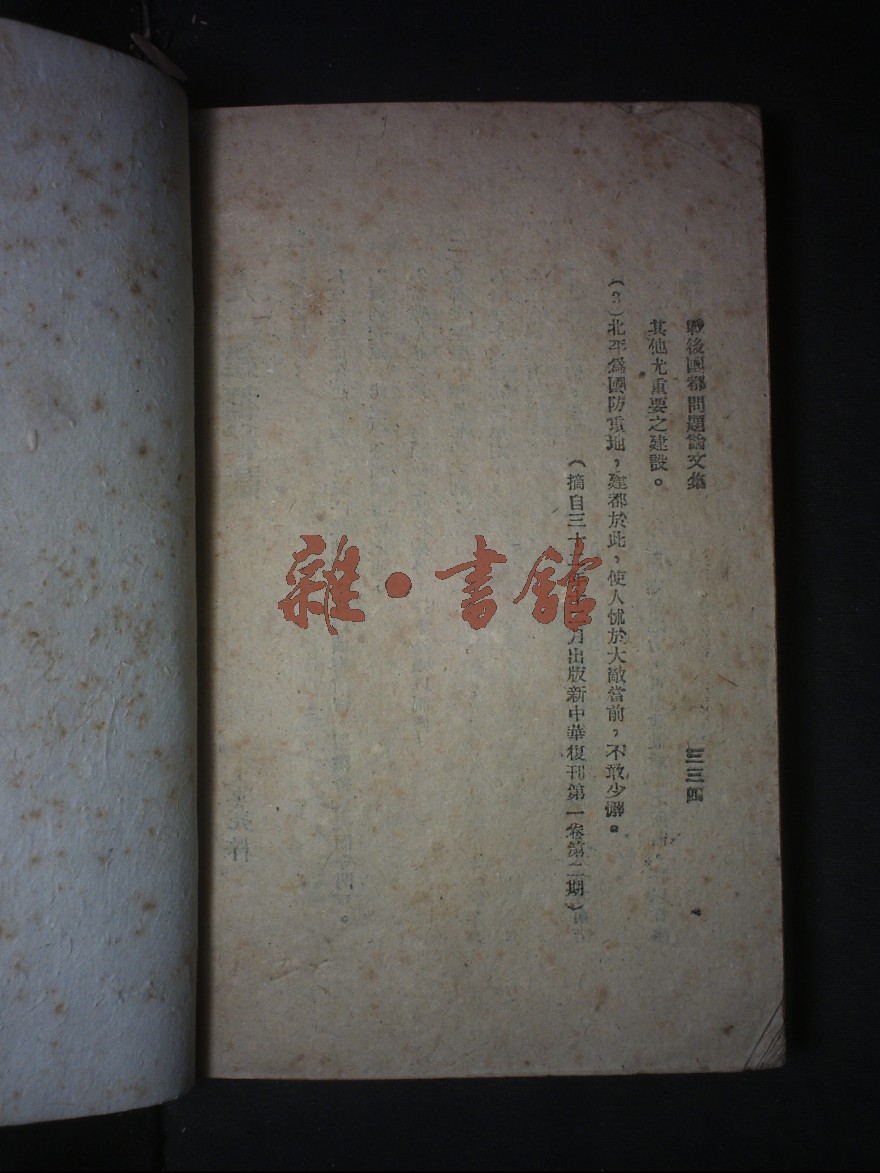 戰後國都問題論文集
三三四
其他尤重要之建設。
(3)北平爲國防重地,建都於此,使人怵於大敵當前,不敢少懈。
(摘自三十 月出版新中華復刊第一卷第二期)
雜·書館